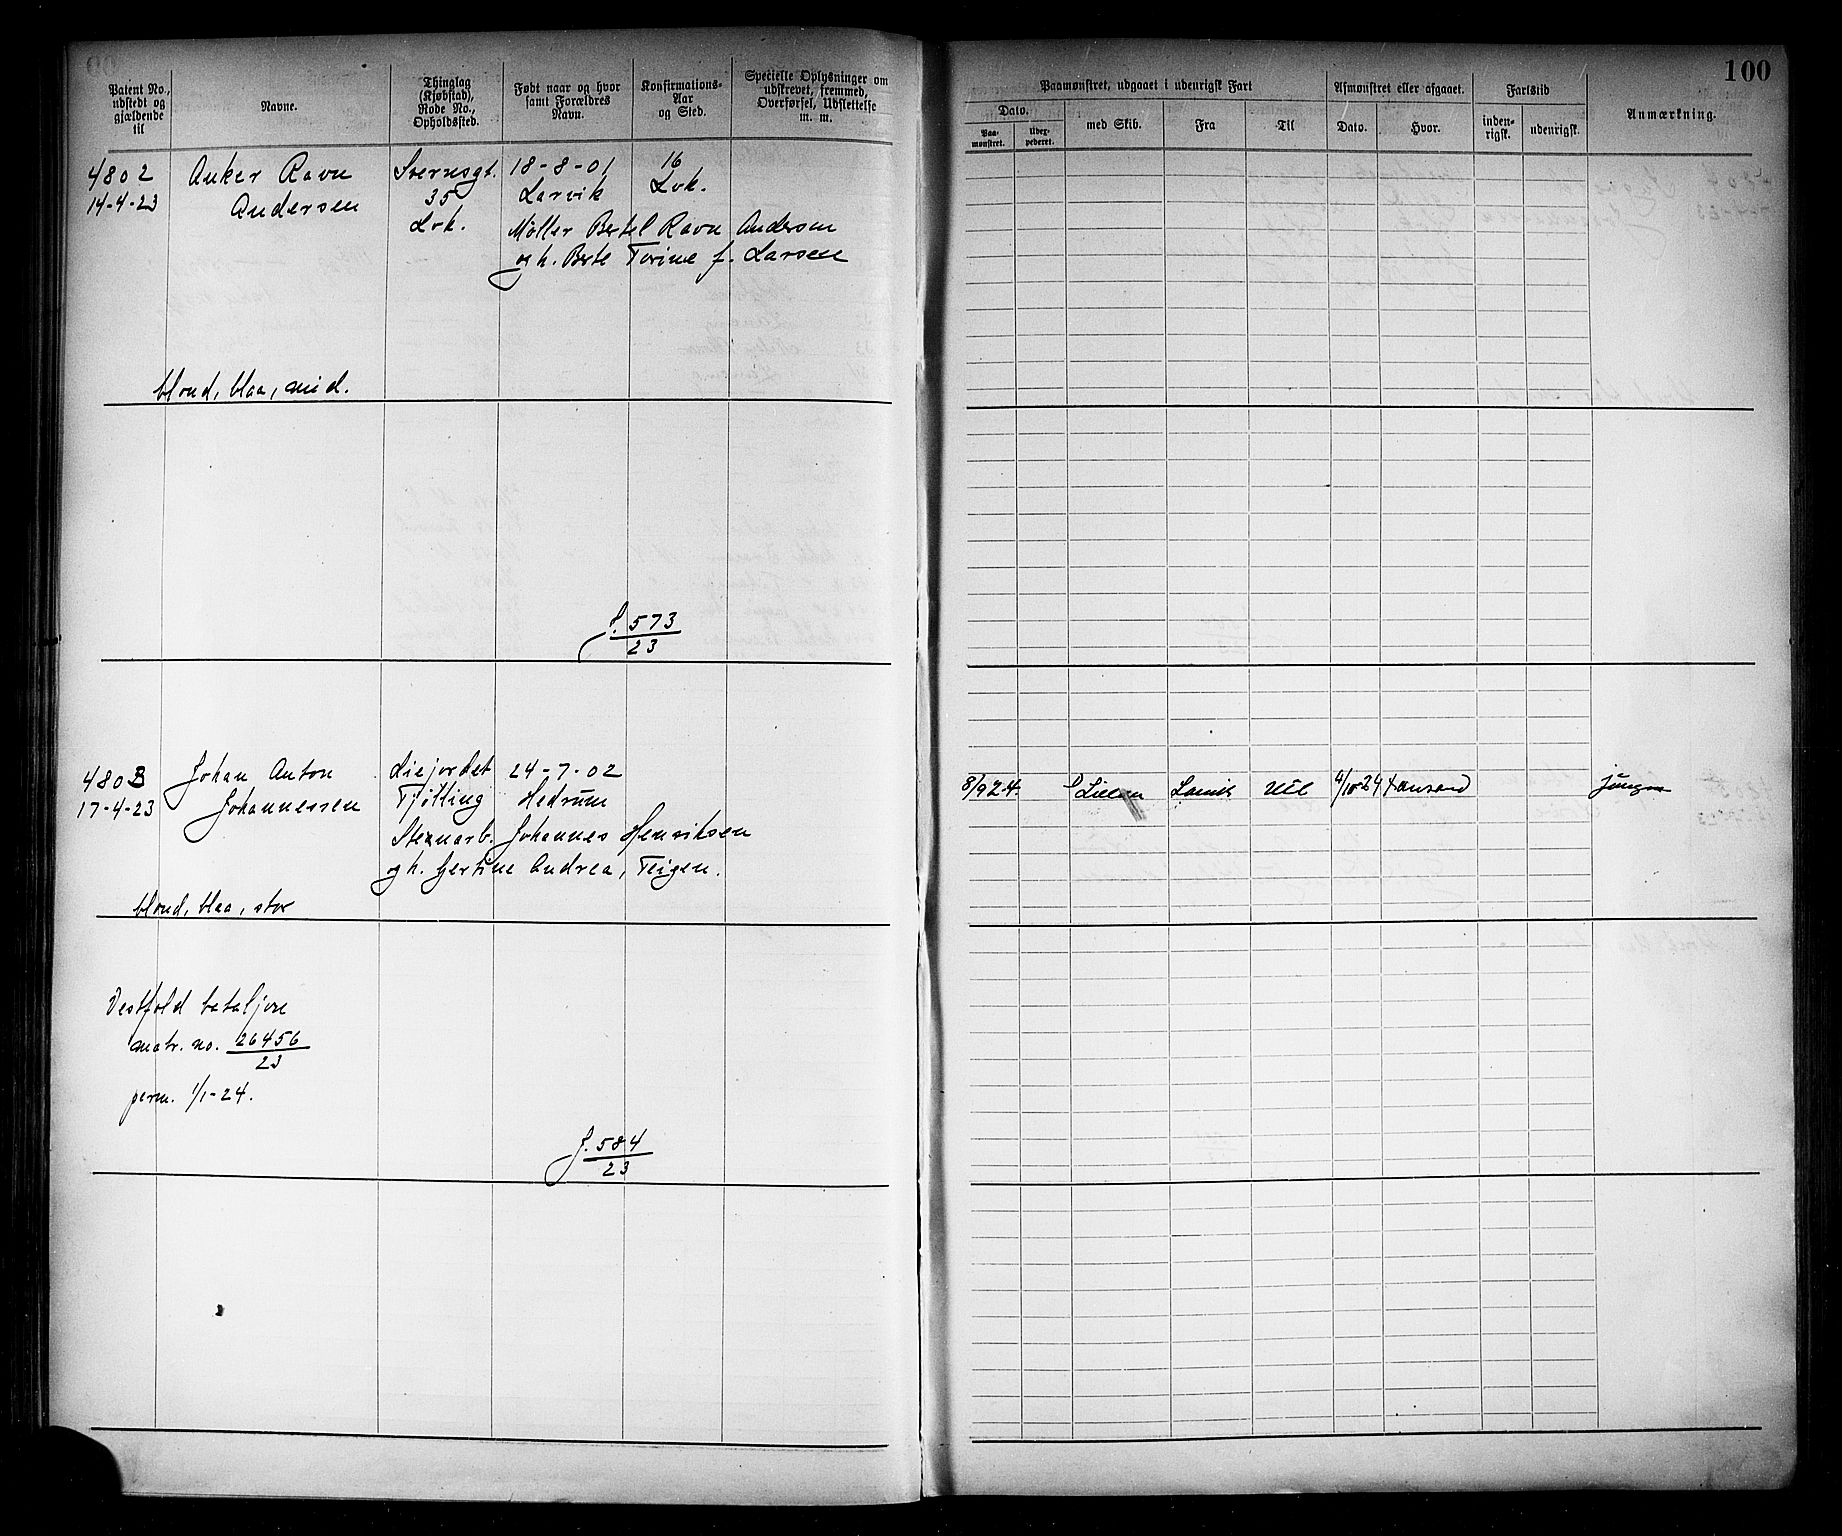 100
Patent No., udstedt og gjældende til
Navne.
Thinglag (Kjøbstad), Rode No., Opholdssted.
Født naar og hvor samt Forældres Navn.
Konfirmations-Aar og Sted.
Specielle Oplysninger om udskrevet, fremmed, Overførsel, Udslettelse m. m.
Paamønstret, udgaaet i udenrigsk Fart
Dato.
Paa-mønstret.
Udex-pederet.
med Skib.
Fra
Til
Afmønstret eller afgaaet.
Dato.
Hvor.
Fartstid
inden-rigsk.
udenrigsk.
Anmærkning.
4802 Anker Ravn 18-8-01 16
14-4-23 Andersen 35 Larvik Lvk.
Lvk. Møller Bertel Ravn Andersen
og h. Berte Torine f. Larsen
blond, blaa, mid.
J. 573
23
4803 Johan Anton Liejordet 24-7-02
17-4-23 Johannessen Tjølling Hedrum
Stenarb. Johannes Henriksen
og h. Gertine Andrea, Teigen.
blond, blaa, stor
8/9 24. Larvik 4/10-24
Vestfold bataljon
matr. no. 26456
23
perm. 1/1-24.
J. 584
23